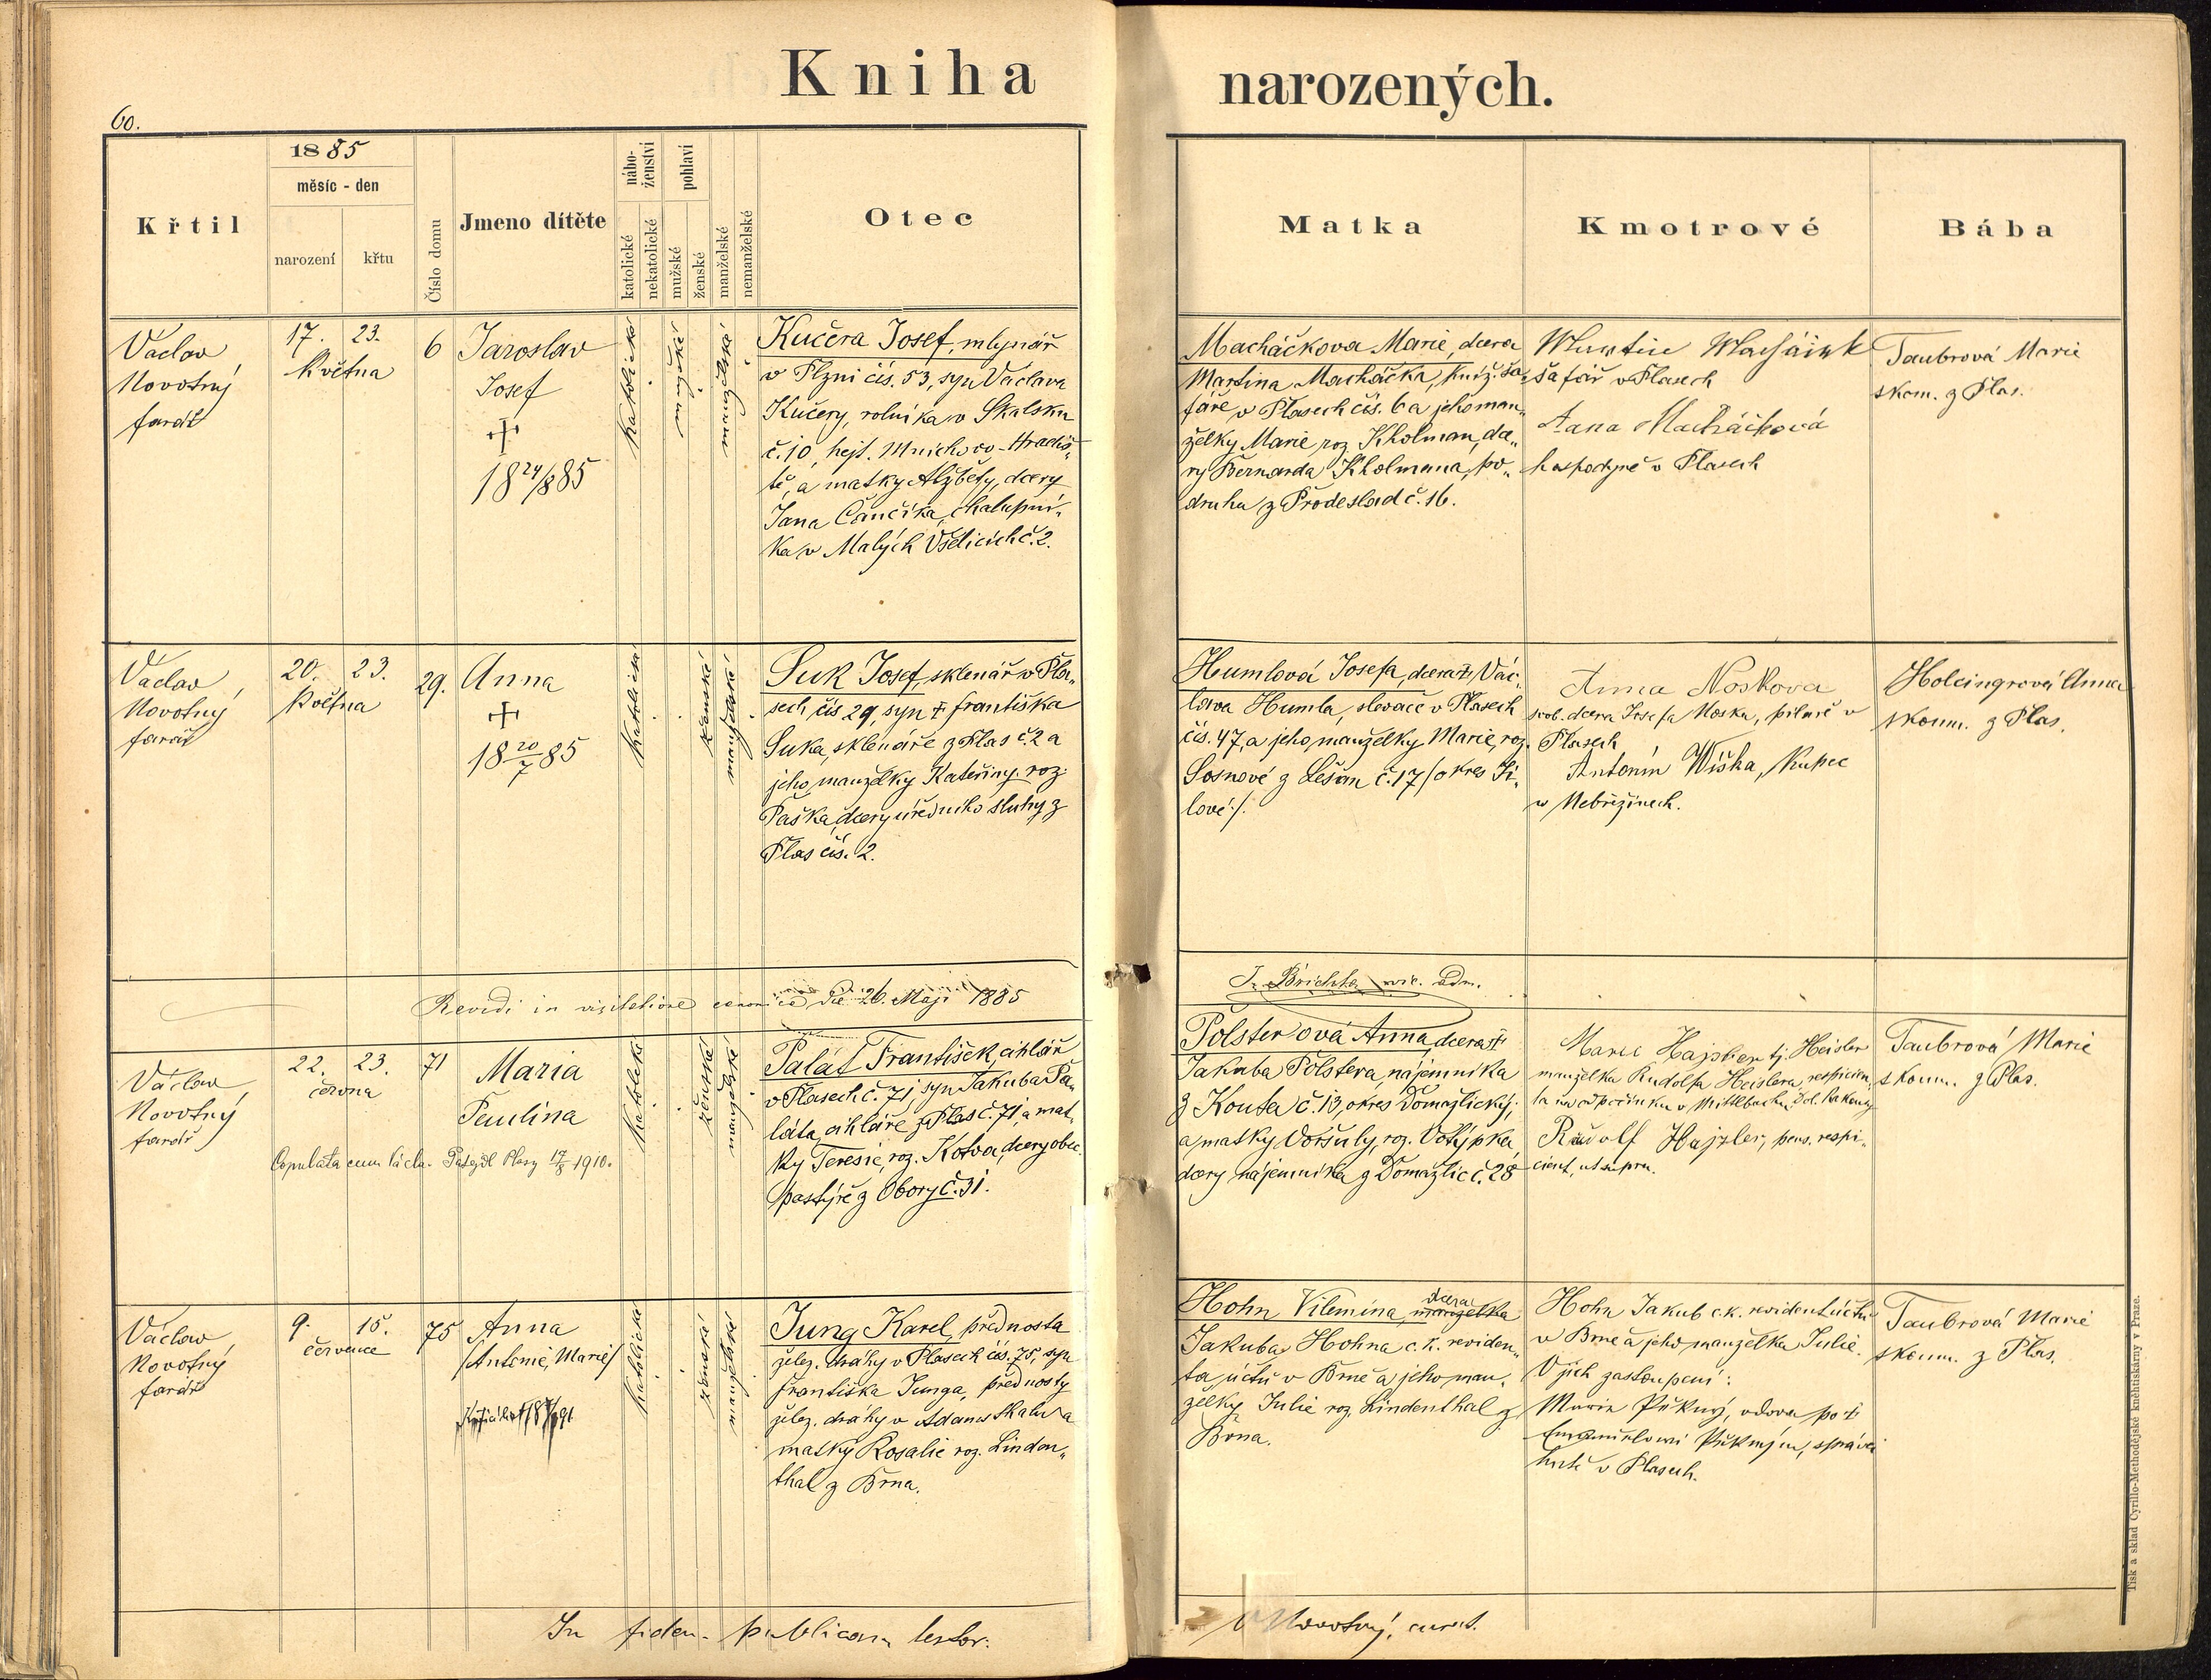 Kniha narozených.
60.
1885
měsíc - den
Křtil
narození
křtu
Číslo domu
Jmeno dítěte
nábo-
ženství
katolické
nekatolické
pohlaví
mužské
ženské
manželské
nemanželské
Otec
Matka
Kmotrové
Bába
Václav
Novotný
farář
17. 23.
Května
6
Jaroslav
Josef
+
18 24/8 85
katolické
mužské
manželské
Kučera Josef, mlynář
v Plzni čís. 53, syn Václava
Kučery, rolníka v Skalsku
č. 10, hejt. Mnichovo-Hradiš-
tě, a matky Alžběty, dcery
Jana Čančíka, chalupní-
ka v Malých Všelicích č. 2.
Macháčkova Marie, dcera
Martina Macháčka, kníž. ša-
fáře v Plasech čís. 6 a jeho man-
želky Marie roz. Kholman, dce-
ry Bernarda Kholmana, po-
druha z Předeslad č. 16.
Martin Macháček
šafář v Plasech
Anna Macháčková
hospodyně v Plasech
Taubrová Marie
zkom. z Plas.
Václav
Novotný
farář
20. 23.
Května
29.
Anna
+
18 20/7 85
katolická
ženská
manželské
Suk Josef, sklenář v Pla-
sech čís 29, syn † Františka
Suka, sklenáře z Plas č. 2 a
jeho manželky Kateřiny roz.
Paška, dcery úředního sluhy z
Plas čís. 2.
Humlová Josefa, dcera † Vác-
lava Humla, slevače v Plasech
čís. 47, a jeho manželky Marie, roz.
Sosnové z Lešan č. 17 /okres Ji-
lové/.
Anna Noskova
svob. dcera Josefa Noska, pilaře v
Plasech
Antonín Wiška, kupec
v Nebřezinech.
Holeingrová Anna
zkoum. z Plas.
Revidi in visitatione canonica die 26. Maji 1885
J. Brichta, vic. adm.
Václav
Novotný
farář
22. 23.
června
71
Maria
Paulina
Copulata cum Václa. Plasy 17/5 1910.
katolické
ženské
manželské
Palát František, cihlář
v Plasech č. 71, syn Jakuba Pa-
láta, cihláře z Plas č. 71, a mat-
ky Teresie, roz. Kotva, dcery obec.
pastýře z Obory č. 31.
Polsterová Anna, dcera †
Jakuba Polstera, nájemníka
z Kouta č. 13, okres Domažlický;
a matky Voršuly, roz. Votýpka,
dcery nájemníka z Domažlic č. 28
Marie Hajsler tj. Heisler
manželka Rudolfa Heislera, respicien-
ta na odpočinku v Mittelbachu Dol. Rakousy
Rudolf Hajzler, pens. respi-
cient, ut supra.
Taubrová Marie
zkoum. z Plas.
Václav
Novotný
farář
9. 15.
července
75
Anna
/Antonie, Marie/
katolická
ženská
manželské
Jung Karel, přednosta
želez. dráhy v Plasech čís. 75, syn
Františka Junga, přednosty
želez. dráhy v Adams Skalu a
matky Rosalie roz. Linden-
thal z Brna.
Hohn Vilemína, manželka dcera
Jakuba Hohna c. k. reviden-
ta účtů v Brně a jeho man-
želky Julie roz. Lindenthal z
Brna.
Hohn Jakub c. k. revident účtů
v Brně a jeho manželka Julie.
V jich zastoupení:
Marie Pěkný, vdova po †
Emanuelovi Pěkným, správci
hutě v Plasech.
Taubrová Marie
zkoum. z Plas.
In fidem publicam testor.
V Novotný, curat.
Tisk a sklad Cyrillo-Methodějské knihtiskárny v Praze.